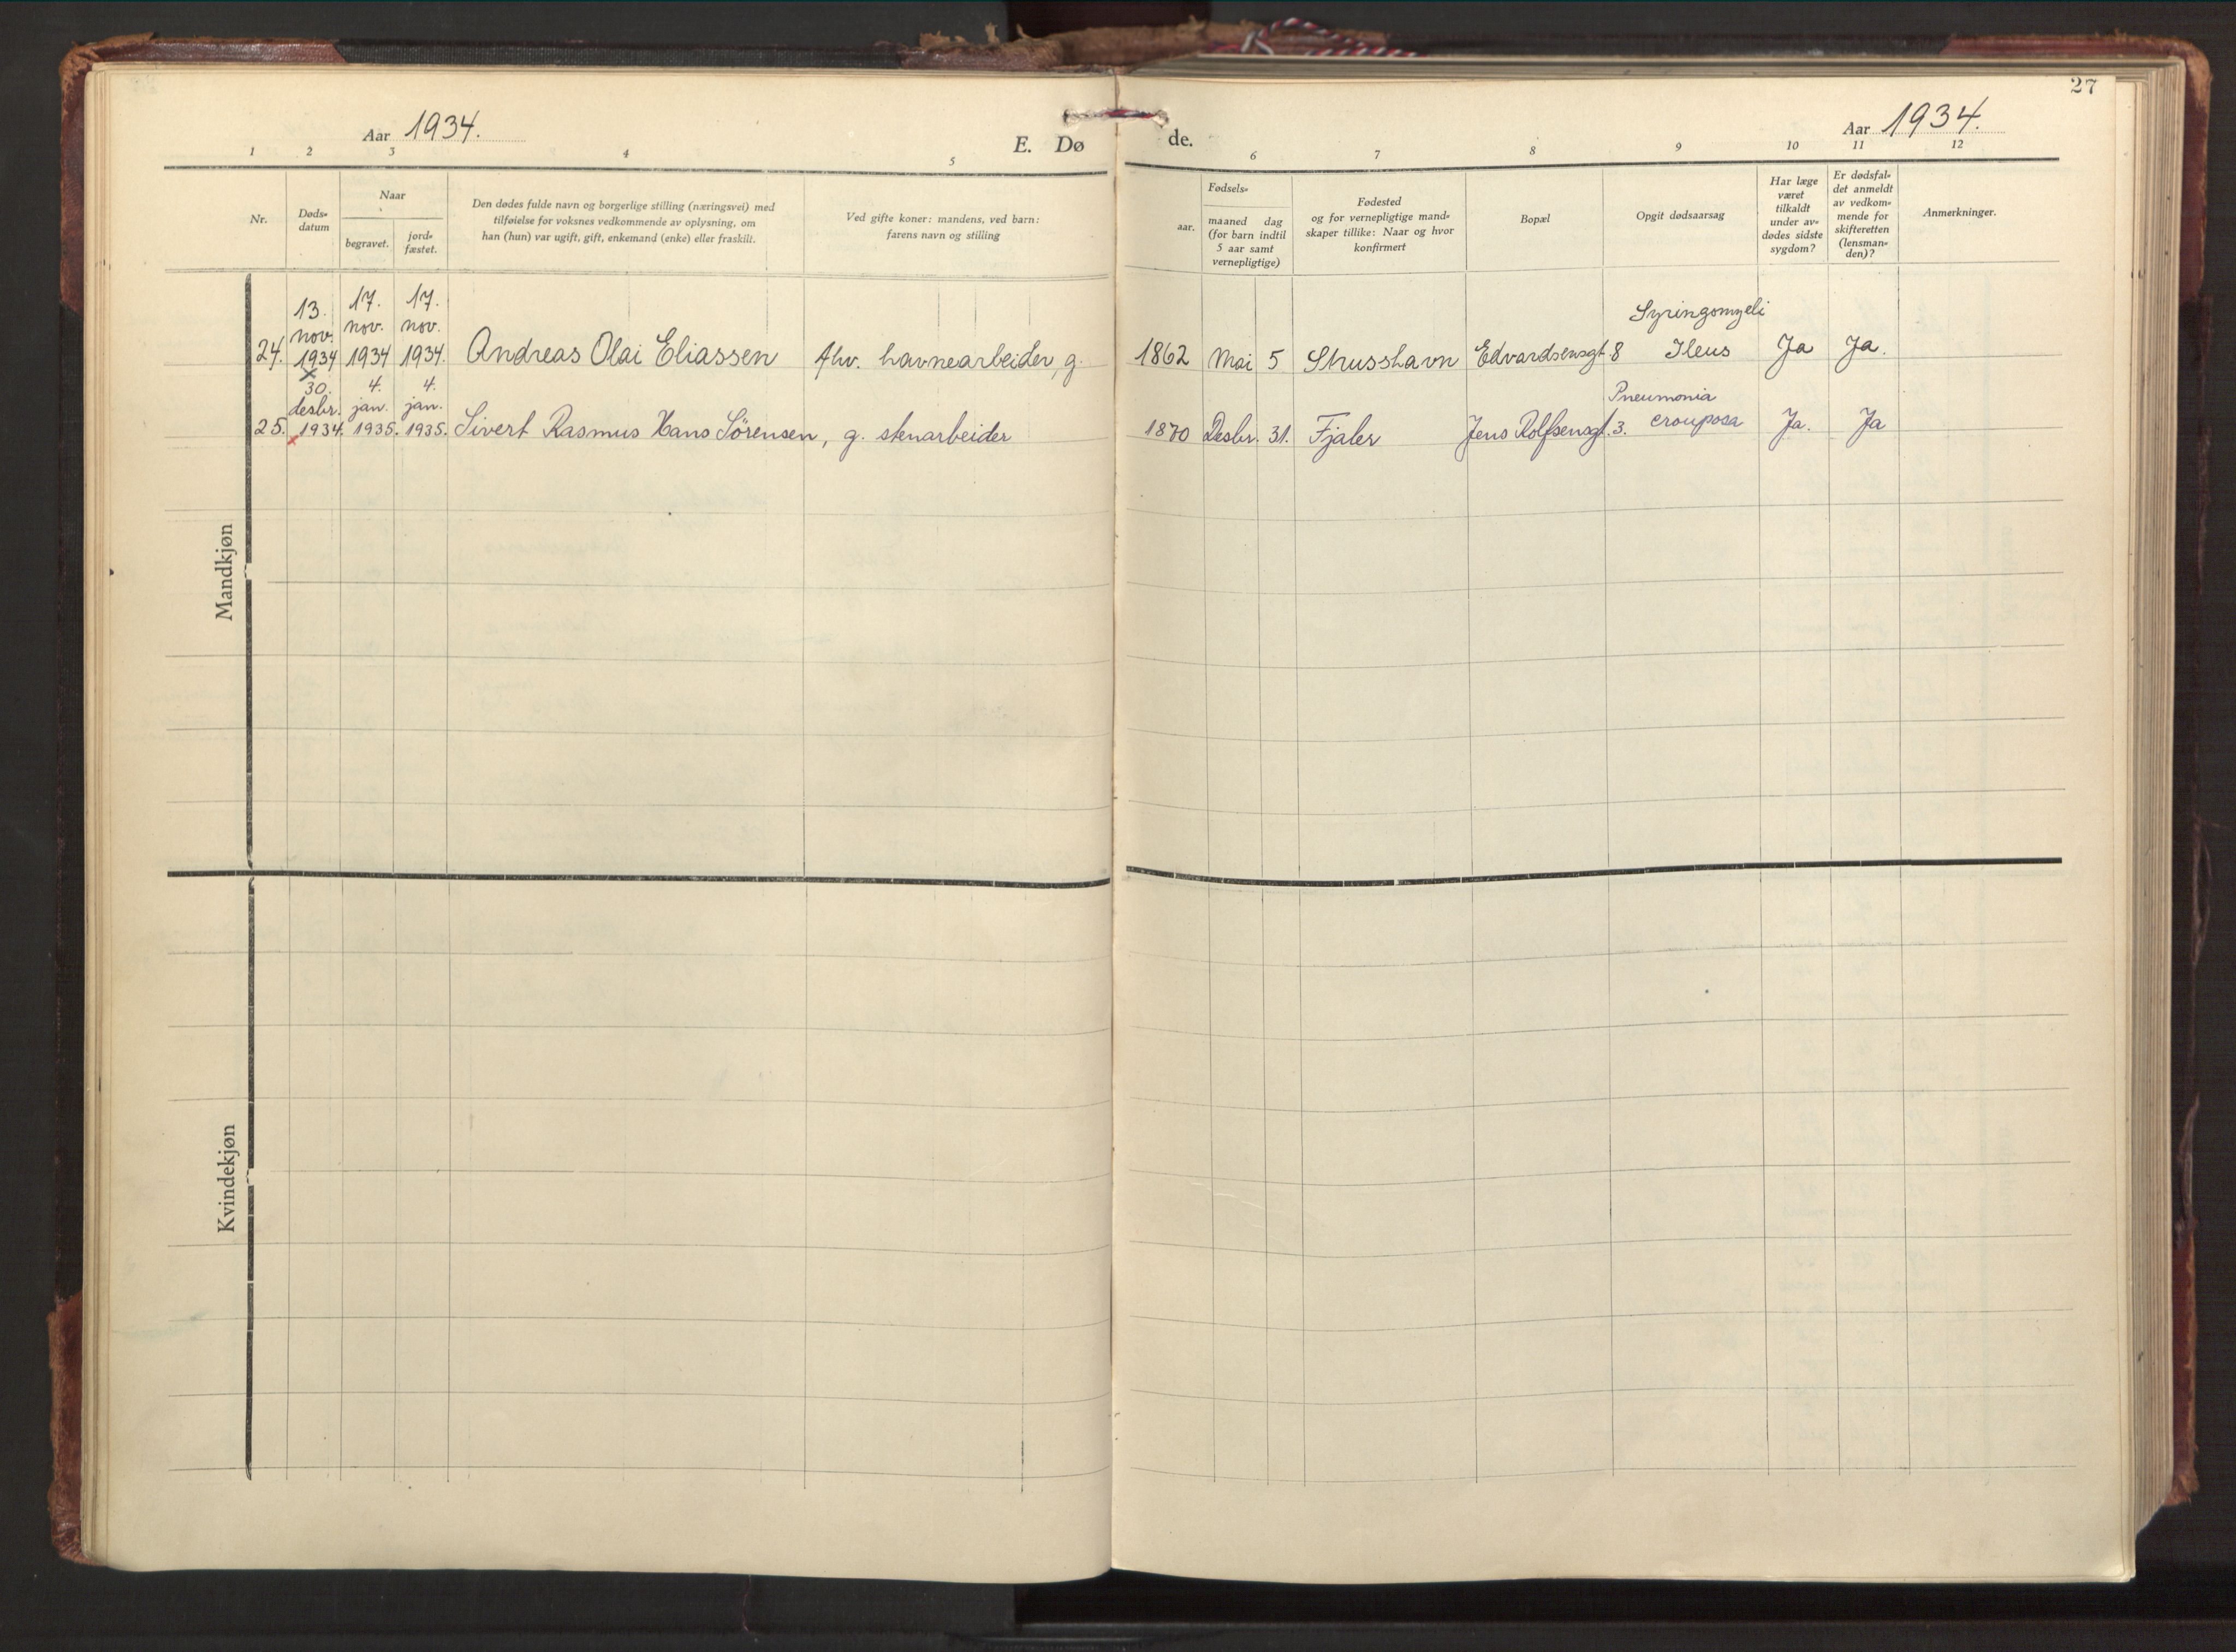 27
Aar 1934.
E. Dø de.
Aar 1934.
1 2 3 4 5 6 7 8 9 10 11 12
Nr.
Døds-
datum
Naar
begravet.
jord-
fæstet.
Den dødes fulde navn og borgerlige stilling (næringsvei) med
tilføielse for voksnes vedkommende av oplysning, om
han (hun) var ugift, gift, enkemand (enke) eller fraskilt.
Ved gifte koner: mandens, ved barn:
farens navn og stilling
Fødsels-
aar.
maaned dag
(for barn indtil
5 aar samt
vernepligtige)
Fødested
og for vernepligtige mand-
skaper tillike: Naar og hvor
konfirmert
Bopæl
Opgit dødsaarsag
Har læge
været
tilkaldt
under av-
dødes sidste
sygdom?
Er dødsfal-
det anmeldt
av vedkom-
mende for
skifteretten
(lensman-
den)?
Anmerkninger.
Mandkjøn
13. 17. 17.
nov. nov. nov. Syringomyeli
24. 1934 1934 1934. Andreas Olai Eliassen fhv. havnearbeider, g. 1862 Mai 5 Skusshavn Edvardsensgt. 8 Ileus Ja Ja.
x
30. 4. 4.
desbr. jan. jan. Pneumonia
25. x 1934. 1935. 1935. Sivert Rasmus Hans Sörensen, g. stenarbeider 1870 Desbr. 31. Fjaler Jens Rolfsensgt. 3. crouposa Ja. Ja
Kvindekjøn